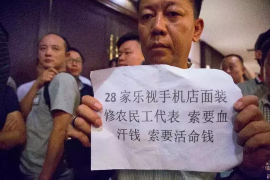 28 家乐视手机店面装
修农民工代表 索要血
汗钱 索要活命钱